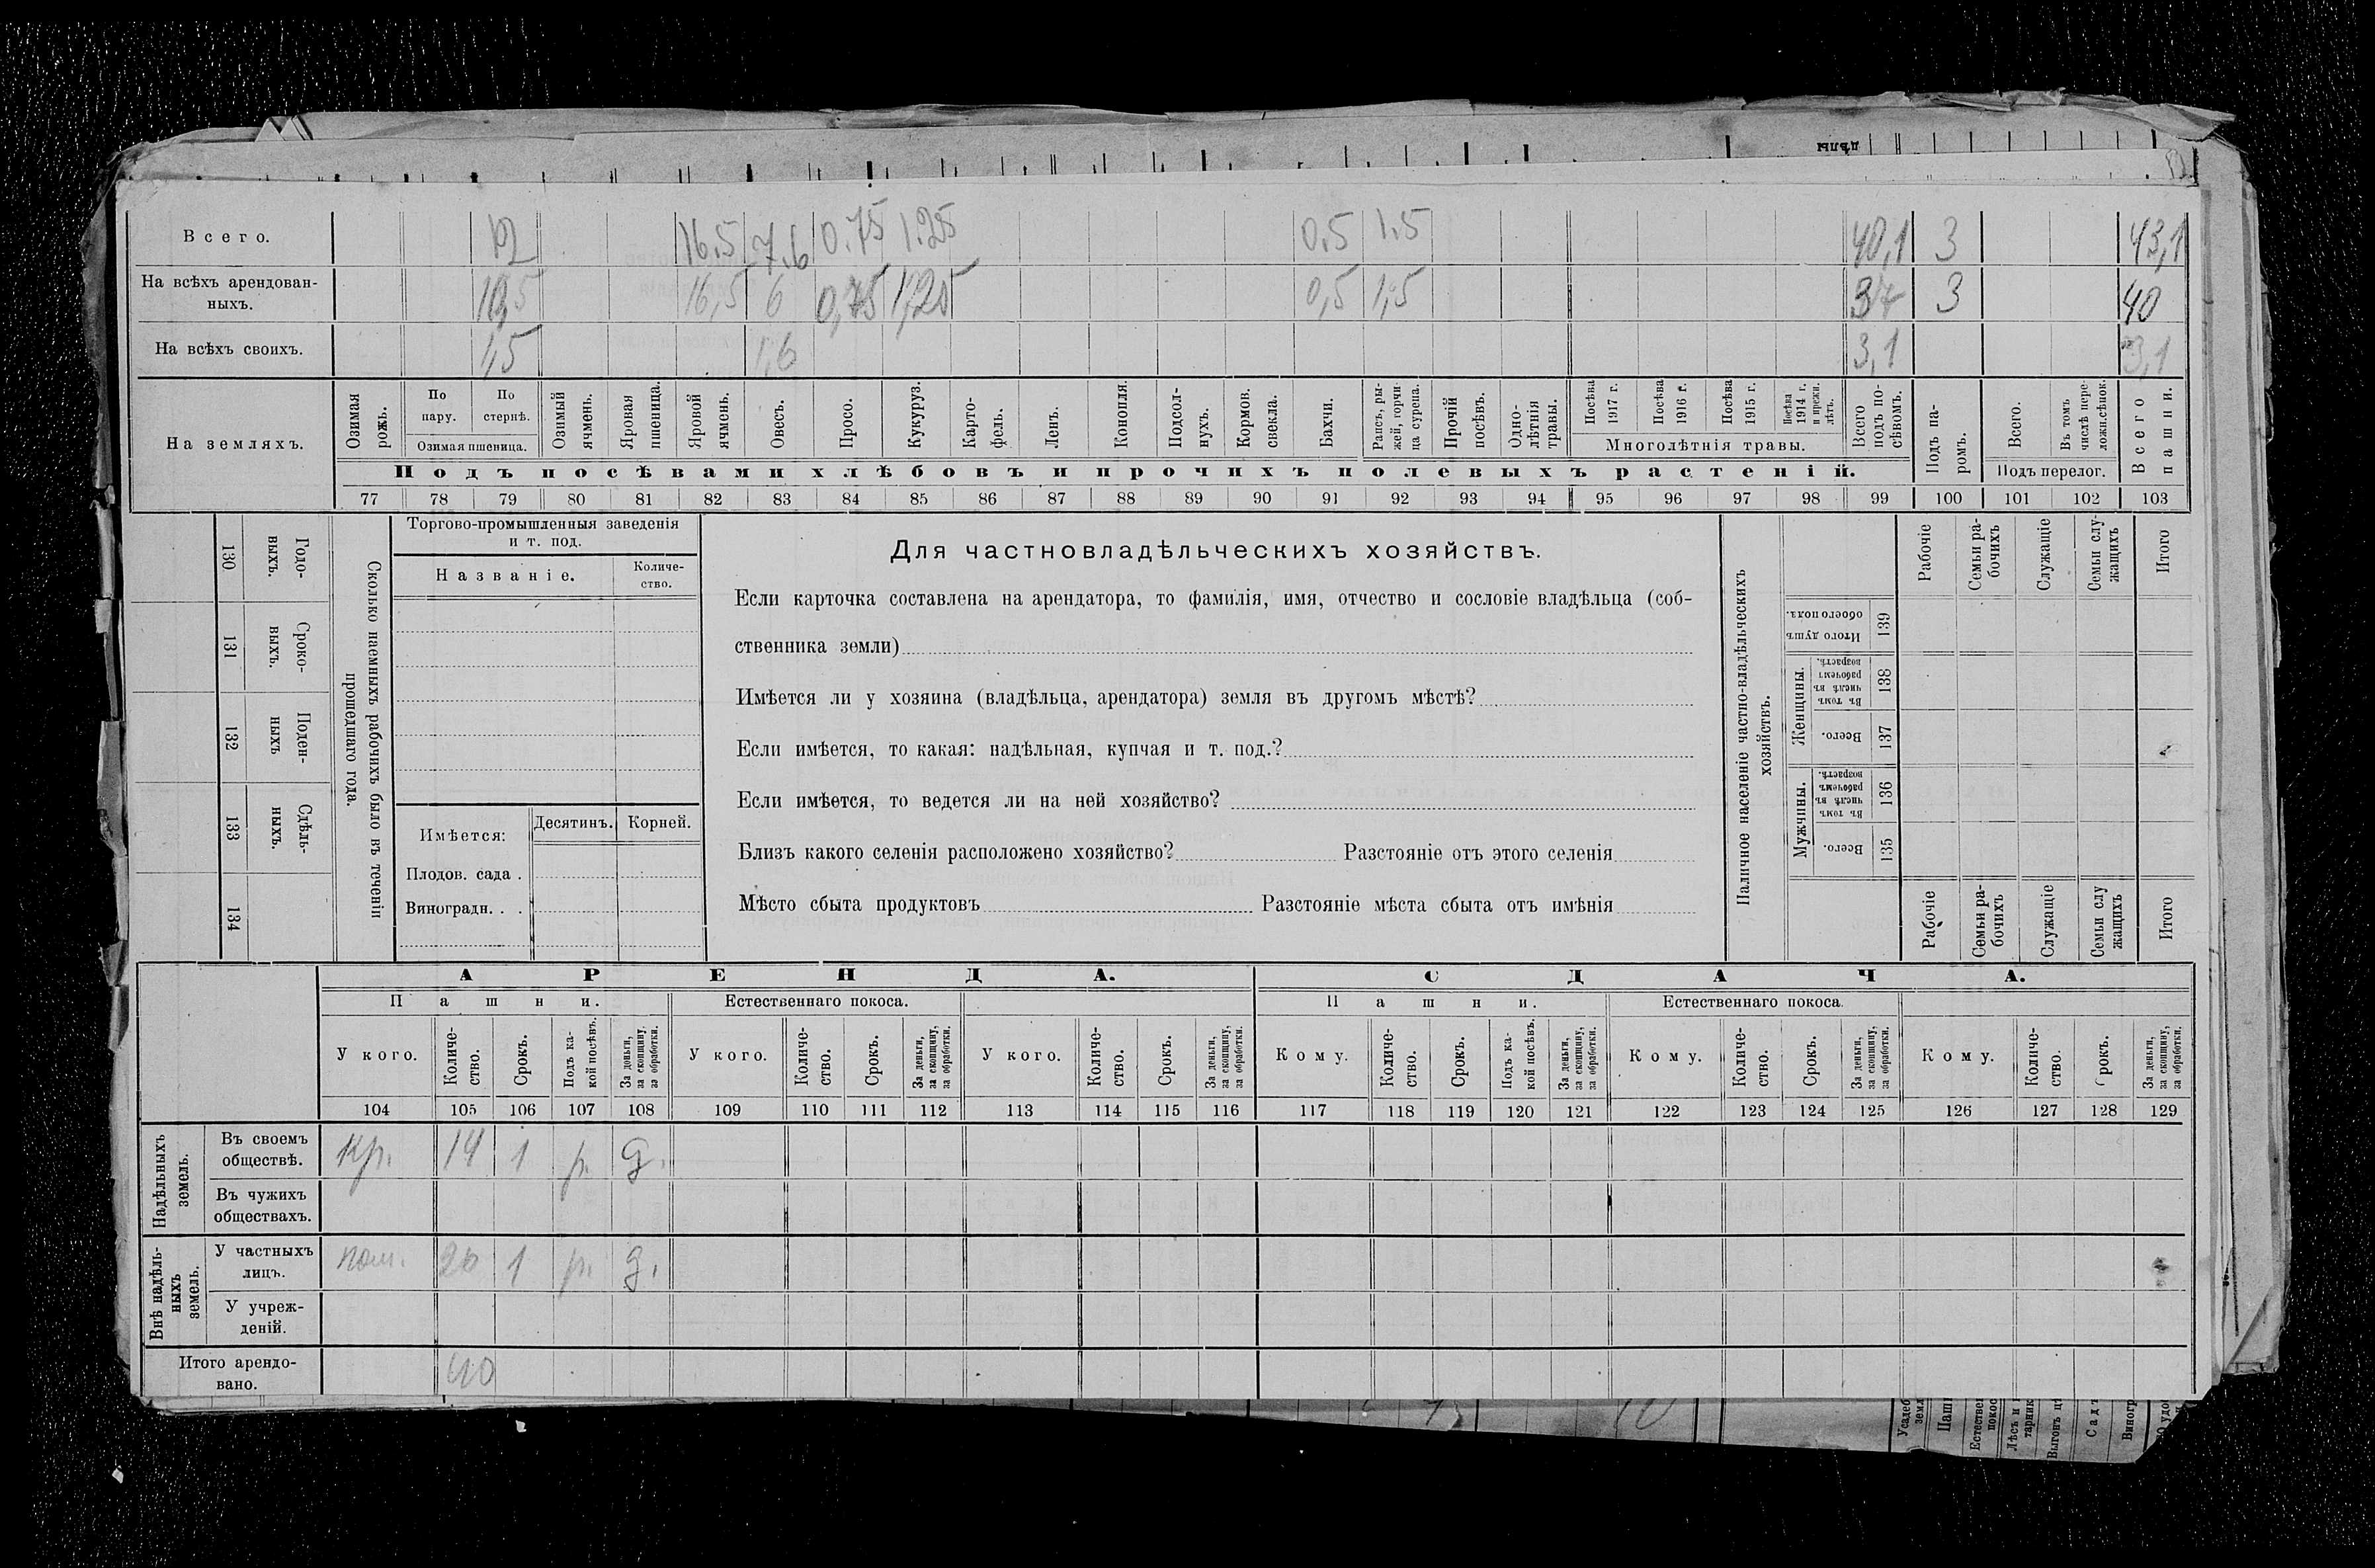 дѣлы
Всего. 12 16.5 7.6 0.75 1.25 0.5 1.5 40,1 3 43,1
На всѣхъ арендован-
ныхъ. 10,5 16,5 6 0,75 1,25 0,5 1,5 37 3 40
На всѣхъ своихъ. 1,5 1,6 3,1 3,1
На земляхъ.
Озимая рожь.
По пару.
По стернѣ.
Озимая пшеница.
Озимый ячмень.
Яровая пшеница.
Яровой ячмень.
Овесъ.
Просо.
Кукуруз.
Карто-
фель.
Ленъ.
Конопля.
Подсол-
нухъ.
Кормов. свекла.
Бахчи.
Рапсъ, ры-
жей, горчи-
ца сурепа.
Прочій посѣвъ.
Одно-
лѣтнія травы.
Посѣва 1917 г.
Посѣва 1916 г.
Посѣва 1915 г.
Посѣва 1914 г. и прежн. лѣтъ.
Многолѣтнія травы.
Всего подъ по-
сѣвомъ.
Подъ па-
ромъ.
Всего.
Въ томъ числѣ пере-
ложн.сѣнок.
Подъ перелог.
Всего пашни.
Подъ посѣвами хлѣбовъ и прочихъ полевыхъ растеній.
77 78 79 80 81 82 83 84 85 86 87 88 89 90 91 92 93 94 95 96 97 98 99 100 101 102 103
130 Годо-
выхъ.
131 Сроко-
выхъ.
132 Поден-
ныхъ
133 Сдѣль-
ныхъ.
134
Сколько наемныхъ рабочихъ было въ теченіи
прошедшаго года.
Торгово-промышленныя заведенія
и т. под.
Названіе.
Количе-
ство.
Имѣется: Десятинъ. Корней.
Плодов. сада .
Виноградн. . .
Для частновладѣльческихъ хозяйствъ.
Если карточка составлена на арендатора, то фамилія, имя, отчество и сословіе владѣльца (соб-
ственника земли)
Имѣется ли у хозяина (владѣльца, арендатора) земля въ другомъ мѣстѣ?
Если имѣется, то какая: надѣльная, купчая и т. под.?
Если имѣется, то ведется ли на ней хозяйство?
Близъ какого селенія расположено хозяйство? Разстояніе отъ этого селенія
Мѣсто сбыта продуктовъ Разстояніе мѣста сбыта отъ имѣнія
Наличное населеніе частно-владѣльческихъ
хозяйствъ.
Рабочіе
Семьи ра-
бочихъ
Служащіе
Семьи слу-
жащихъ
Итого
Итого душъ обоего пола. 139
Женщины.
Въ томъ числѣ въ рабочемъ возрастѣ. 138
Всего. 137
Мужчины.
Въ томъ числѣ въ рабочемъ возрастѣ. 136
Всего. 135
Рабочіе
Семьи ра-
бочихъ
Служащіе
Семьи слу
жащихъ
Итого
АРЕНДА. СДАЧА.
Пашни. Естественнаго покоса. Пашни. Естественнаго покоса.
У кого.
Количе-
ство.
Срокъ.
Подъ ка-
кой посѣвъ.
За деньги, за скопщину, за обработки.
У кого.
Количе-
ство.
Срокъ.
За деньги, за скопщину, за обработки.
У кого.
Количе-
ство.
Срокъ.
За деньги, за скопщину, за обработки.
Кому.
Количе-
ство.
Срокъ.
Подъ ка-
кой посѣвъ.
За деньги, за скопщину, за обработки.
Кому.
Количе-
ство.
Срокъ.
За деньги, за скопщину, за обработки.
Кому.
Количе-
ство.
Срокъ.
За деньги, за скопщину, за обработки.
104 105 106 107 108 109 110 111 112 113 114 115 116 117 118 119 120 121 122 123 124 125 126 127 128 129
Надѣльныхъ
земель.
Въ своемъ
обществѣ. кр. 14 1 р. д.
Въ чужихъ
обществахъ.
Внѣ надѣль-
ныхъ
земель.
У частныхъ
лицъ. пом. 26 1 р. д.
У учреж-
деній.
Итого арендо-
вано. 40